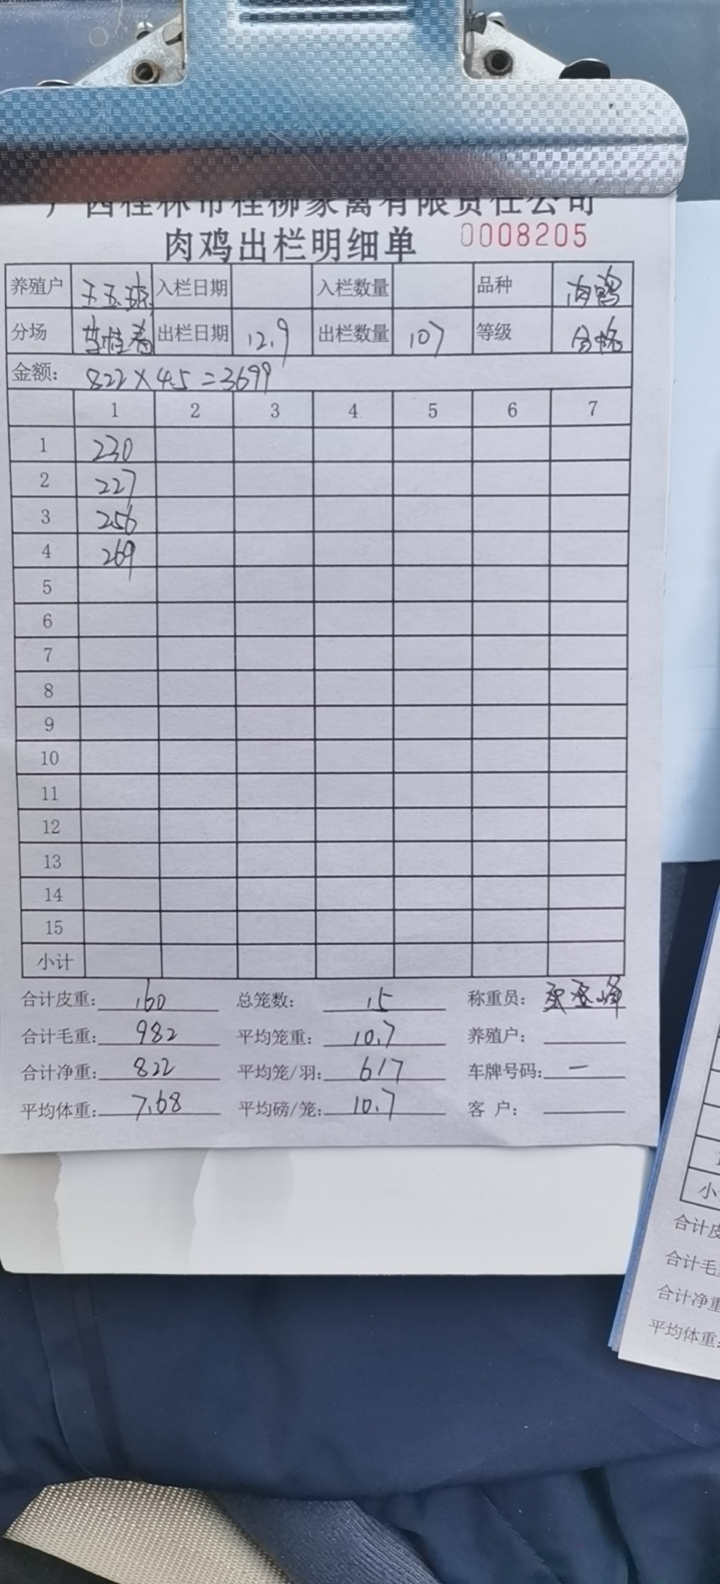 广西桂林市桂柳家禽有限责任公司
肉鸡出栏明细单 0008205
养殖户 王玉琼 入栏日期 入栏数量 品种 肉鸡
分场 出栏日期 12.9 出栏数量 107 等级 合格
金额: 822×4.5=3699
1 2 3 4 5 6 7
1 230
2 227
3 256
4 269
5
6
7
8
9
10
11
12
13
14
15
小计
合计皮重: 160 总笼数: 15 称重员:
合计毛重: 982 平均笼重: 10.7 养殖户:
合计净重: 822 平均笼/羽: 617 车牌号码: —
平均体重: 7.68 平均磅/笼: 10.7 客户:
小
合计皮
合计毛
合计净重
平均体重: